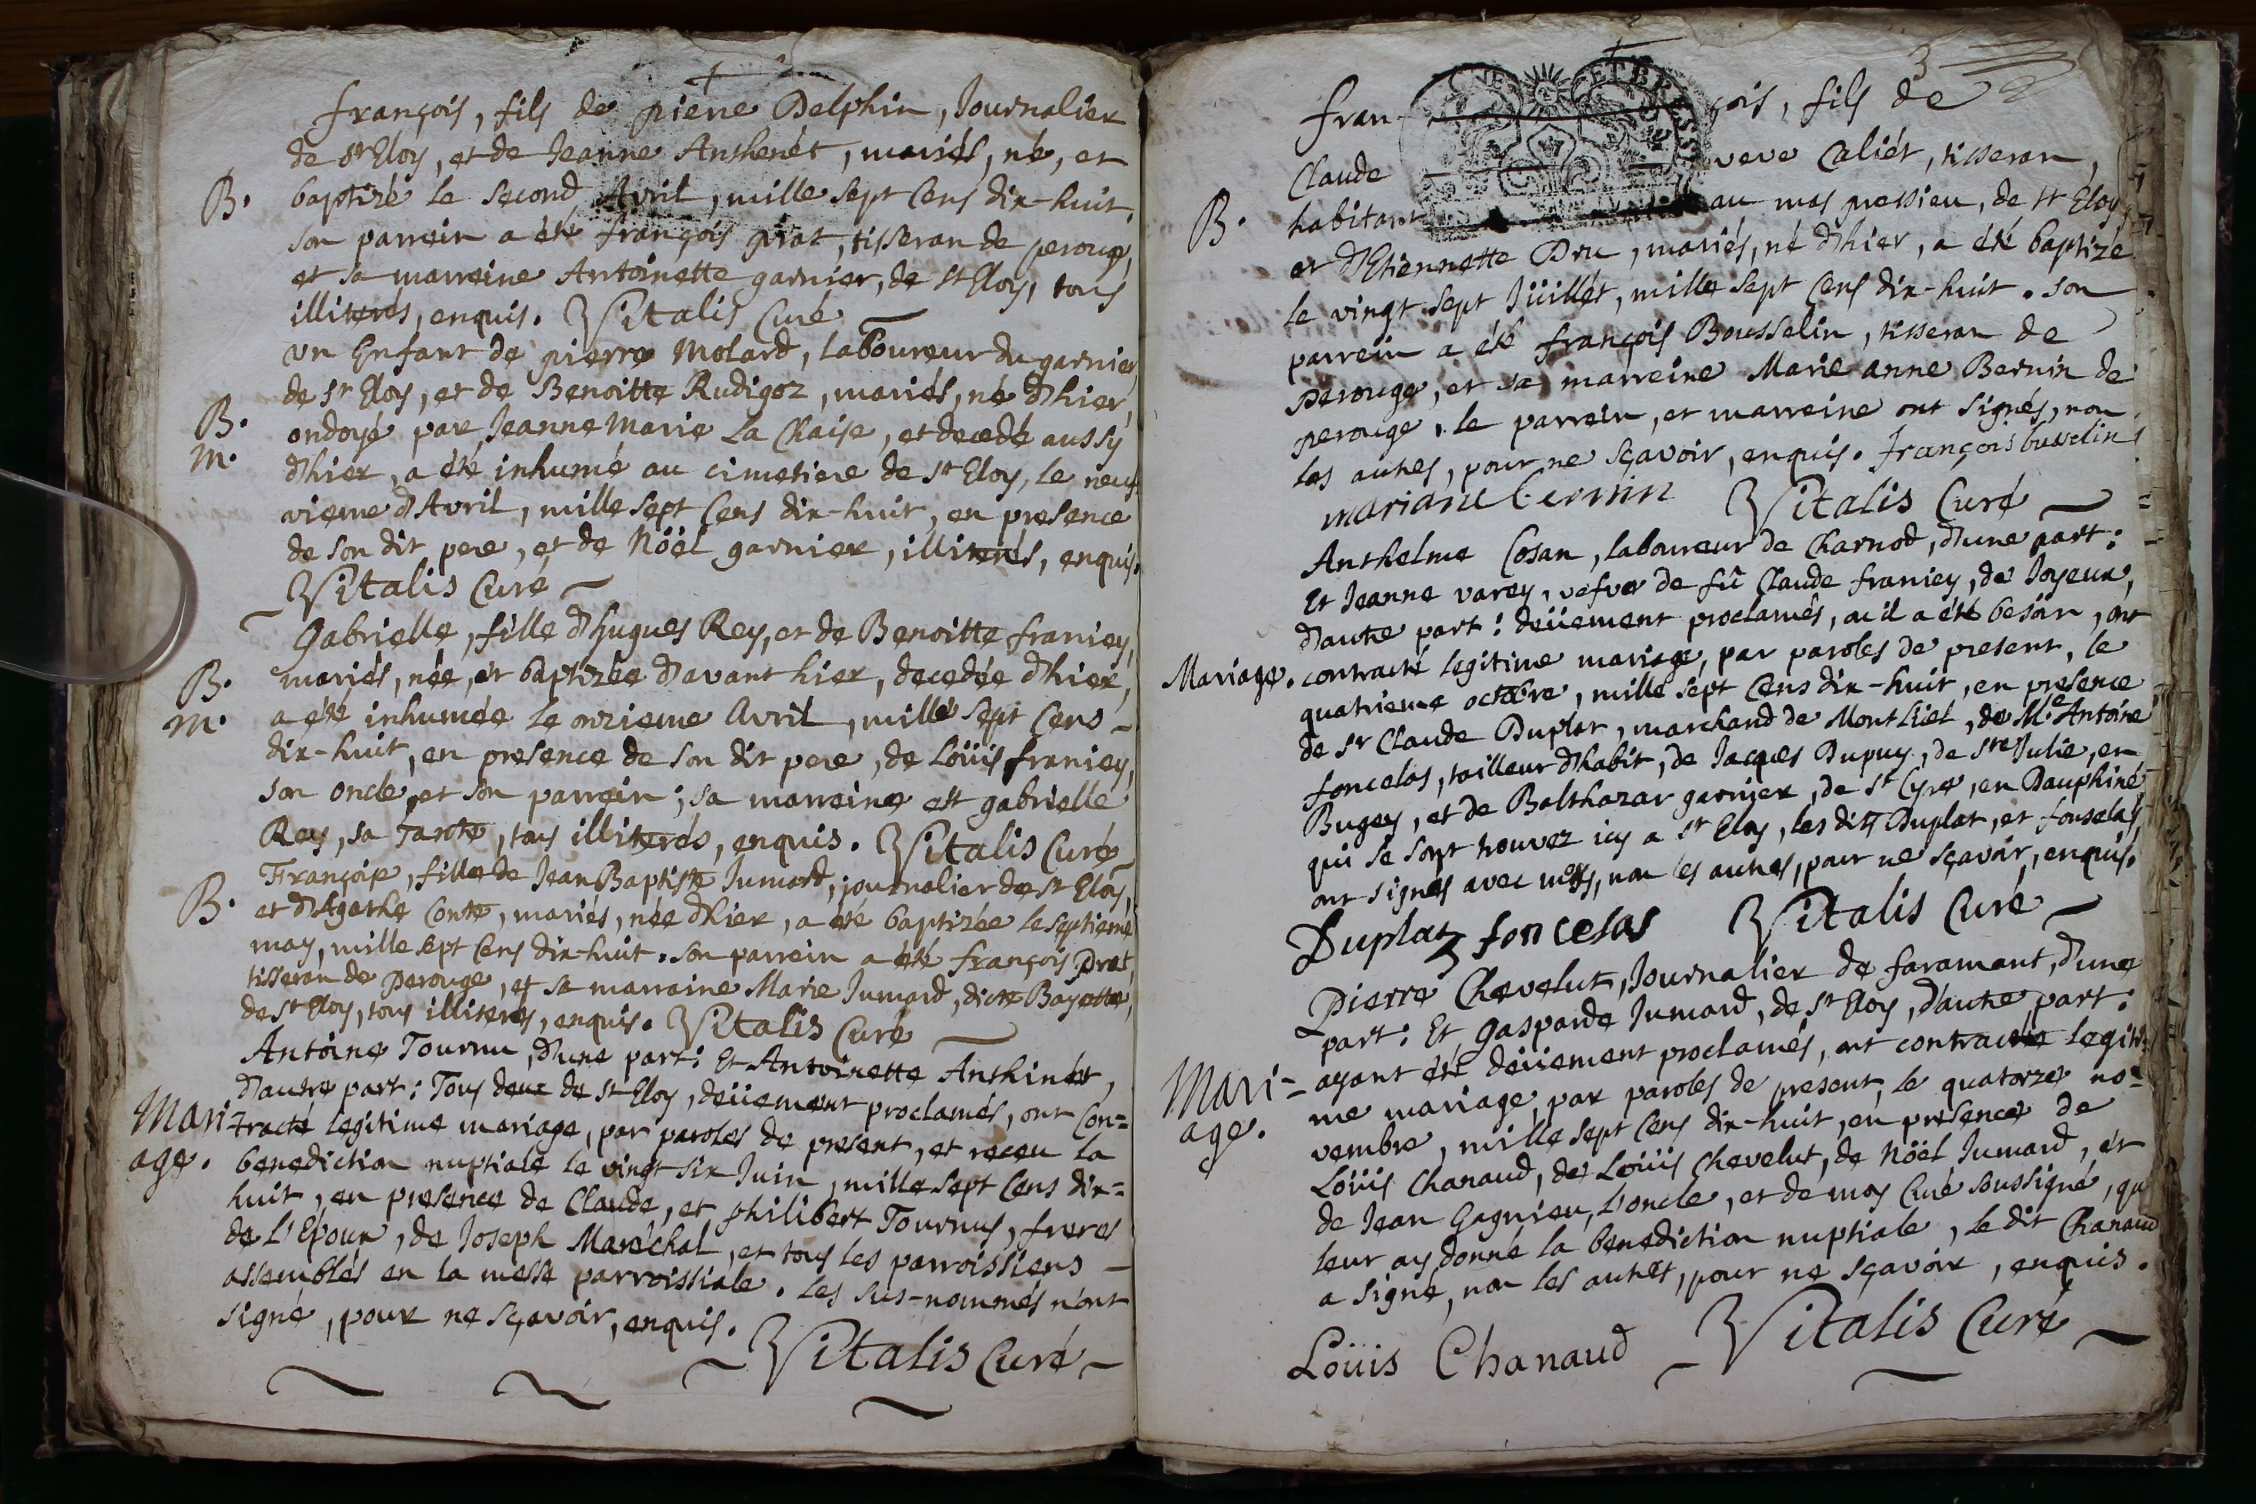 françois, fils de pierre Delphin, Journalier
de st Eloy, et de Jeanne Anthenet, mariés, né, et
B. baptizé le second Avril, mille sept Cens dix-huit.
son parrein a été françois prat, tisseran de perouge,
et sa marreine Antoinette garnier, de st Eloy, tous
illiterés, enquis. Vitalis Curé
Un Enfant de pierre Molard, laboureur du garnier
de st Eloy, et de Benoitte Rudigoz, mariés, né d'hier,
B. ondoyé par Jeanne Marie La Chaise, et decedé aussy
M. d'hier, a été inhumé au cimetiere de st Eloy, le neuf-
vieme d'Avril, mille sept Cens dix-huit, en presence
de son dit pere, et de Nöel garnier, illiterés, enquis.
Vitalis Curé
Gabrielle, fille d'hugues Rey, et de Benoitte franiey,
B. mariés, née, et baptizée d'avant hier, decedée d'hier,
M. a été inhumée le onzieme Avril, mille sept Cens
dix-huit, en presence de son dit pere, de Loüis franiey,
son oncle, et son parrein; sa marreine est gabrielle
Rey, sa Tante, tous illiterés, enquis. Vitalis Curé
Françoise, fille de Jean Baptiste Jumard, journalier de st Eloy,
B. et d'Agathe Conte, mariés, née d'hier, a été baptizée le septieme
may, mille sept Cens dix-huit. son parrein a été françois Prat,
tisseran de Perouge, et sa marraine Marie Jumard, dicte Bayette,
de st Eloy, tous illiterés, enquis. Vitalis Curé
Antoine Tournu, d'une part: Et Antoinette Anthinet,
d'autre part: Tous deux de st Eloy, deüement proclamés, ont Con=
Mari- tracté legitime mariage, par paroles de present, et receu la
age. benediction nuptiale le vingt six Juin, mille sept Cens dix=
huit, en presence de Claude, et philibert Tournus, freres
de L'Epoux, de Joseph Maréchal, et tous les parroissiens
assemblés en la messe parroissiale. les sus-nommés n'ont
signé, pour ne sçavoir, enquis.
Vitalis Curé
3
fran- çois, fils de
Claude veve Caliét, tisseran,
B. habitant au mas pressieu, de st Eloy
et d'Etiennette Dru, mariés, né d'hier, a été baptizé
le vingt sept Jüillét, mille sept Cens dix-huit. son
parrein a été françois Bousselin, tisseran de
perouge, et sa marreine Marie anne Bernin de
perouge. le parrein, et marreine ont signés, non
les autres, pour ne sçavoir, enquis. françois busselin
mariane bernin Vitalis Curé
Anthelme Cosan, laboureur de Charnod, d'une part:
Et Jeanne varey, vefve de fû Claude franiey, de Joyeux,
d'autre part: deüement proclamés, où il a été besoin, ont
Mariage. contracté legitime mariage, par paroles de present, le
quatrieme octobre, mille sept Cens dix-huit, en presence
de sr Claude Duplat, marchand de Montliel, de Me Antoine
foncelas, tailleur d'habit, de Jacques Dupuy, de ste Julie, en
Bugey, et de Balthazar garnier, de st Cyre, en Dauphiné,
qui se sont trouvez icy a st Eloy, les dits Duplat, et fonselas
ont signés avec moy, non les autres, pour ne sçavoir, enquis.
Duplat foncelas Vitalis Curé
Pierre Chevelut, Journalier de faramant, d'une
part: Et Gasparde Jumard, de st Eloy, d'autre part:
Mari- ayant été deüement proclamés, ont contracté legiti=
age. me mariage, par paroles de present, le quatorze no=
vembre, mille sept Cens dix-huit, en presence de
Loüis Chanaud, de Loüis Chevelut, de Nöel Jumard, et
de Jean Gagnieu, l'oncle, et de moy Curé soussigné, qui
leur ay donné la benediction nuptiale, le dit Chanaud
a signé, non les autres, pour ne sçavoir, enquis.
Loüis Chanaud Vitalis Curé